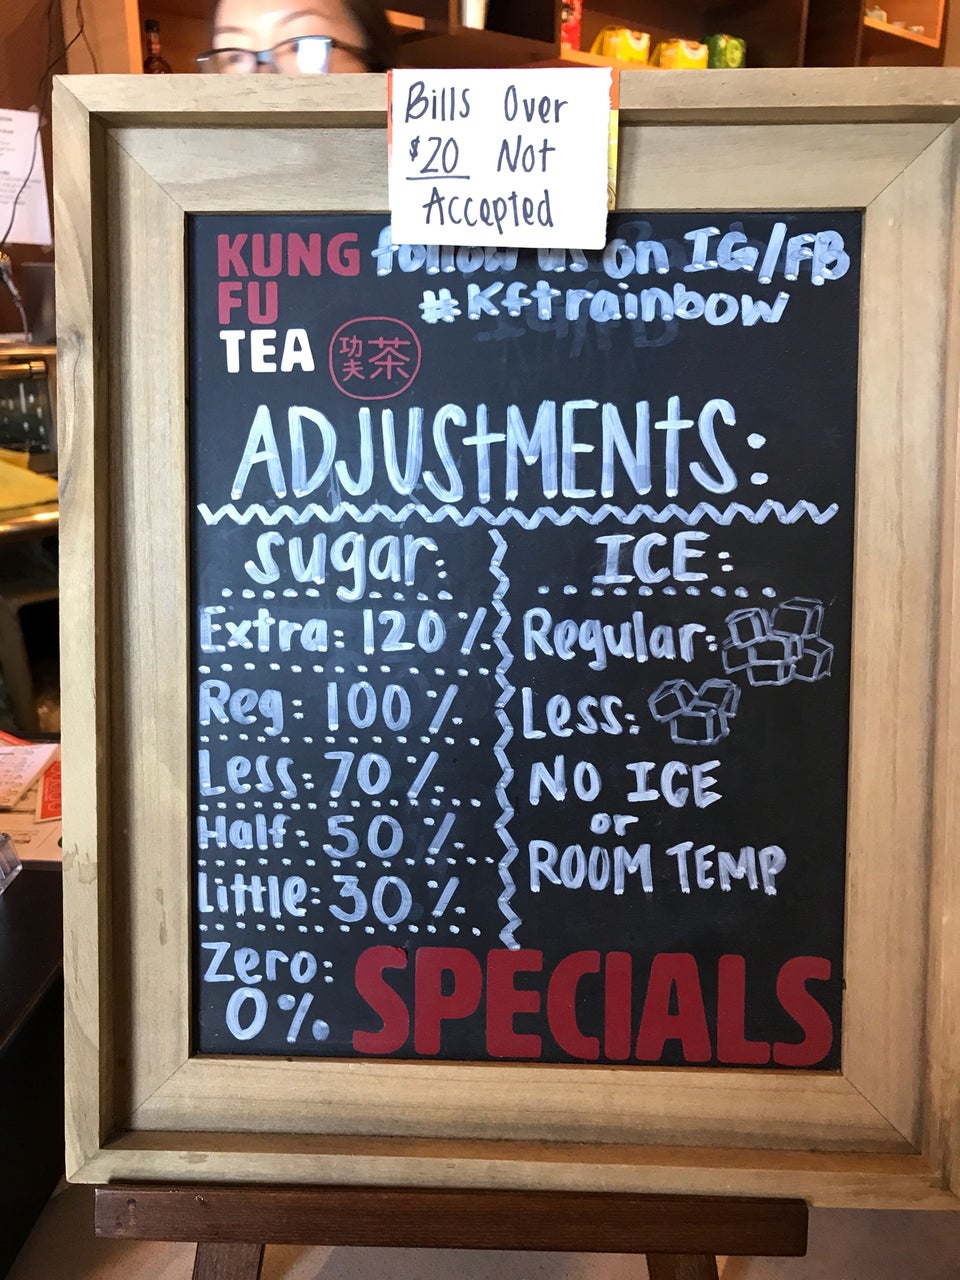 Bills Over
$20 Not
Accepted
KUNG
FU
TEA
功夫茶
follow us on IG/FB
#Kftrainbow
ADJUStMENtS:
Sugar:
Extra: 120%
Reg: 100%
Less: 70%
Half: 50%
Little: 30%
Zero:
0%
ICE:
Regular:
Less:
NO ICE
or
ROOM TEMP
SPECIALS